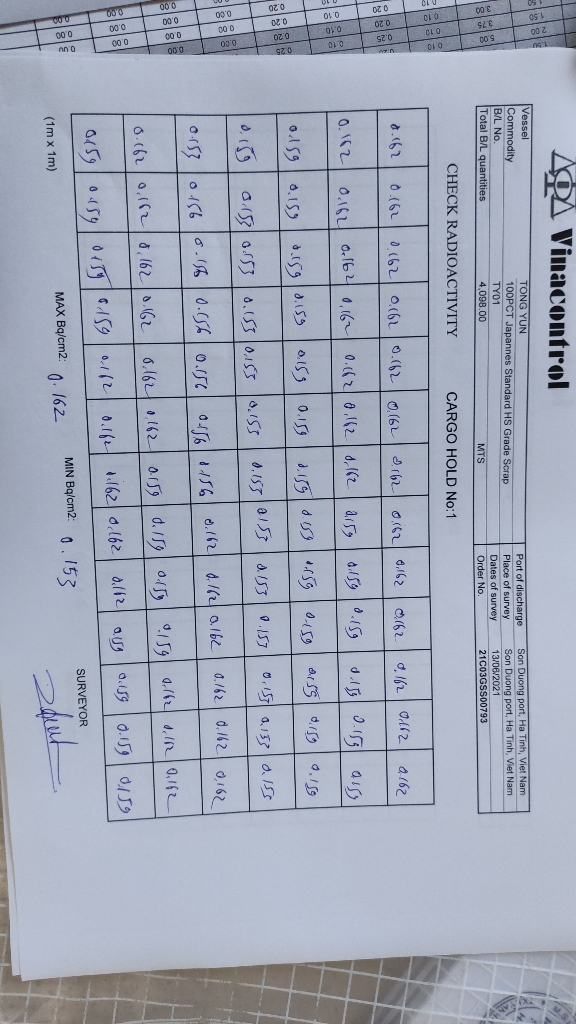 Vinacontrol
Vessel TONG YUN Port of discharge Son Duong port, Ha Tinh, Viet Nam
Commodity 100PCT Japannes Standard HS Grade Scrap Place of survey Son Duong port, Ha Tinh, Viet Nam
B/L No. TY01 Dates of survey 13/06/2021
Total B/L quantities 4,098.00 MTS Order No. 21C03GSS00793
CHECK RADIOACTIVITY CARGO HOLD No:1
0.162 0.162 0.162 0.162 0.162 0.162 0.162 0.162 0.162 0.162 0.162 0.162 0.162
0.162 0.162 0.162 0.162 0.162 0.162 0.162 0.159 0.159 0.159 0.159 0.159 0.159
0.159 0.159 0.159 0.159 0.159 0.159 0.159 0.159 0.159 0.159 0.159 0.159 0.159
0.159 0.153 0.153 0.155 0.155 0.155 0.155 0.155 0.155 0.155 0.155 0.155 0.155
0.153 0.156 0.156 0.156 0.156 0.156 0.156 0.162 0.162 0.162 0.162 0.162 0.162
0.162 0.162 0.162 0.162 0.162 0.162 0.159 0.159 0.159 0.159 0.162 0.162 0.162
0.159 0.159 0.159 0.159 0.162 0.162 0.162 0.162 0.162 0.159 0.159 0.159 0.159
(1m x 1m) MAX Bq/cm2: 0.162 MIN Bq/cm2: 0.153 SURVEYOR